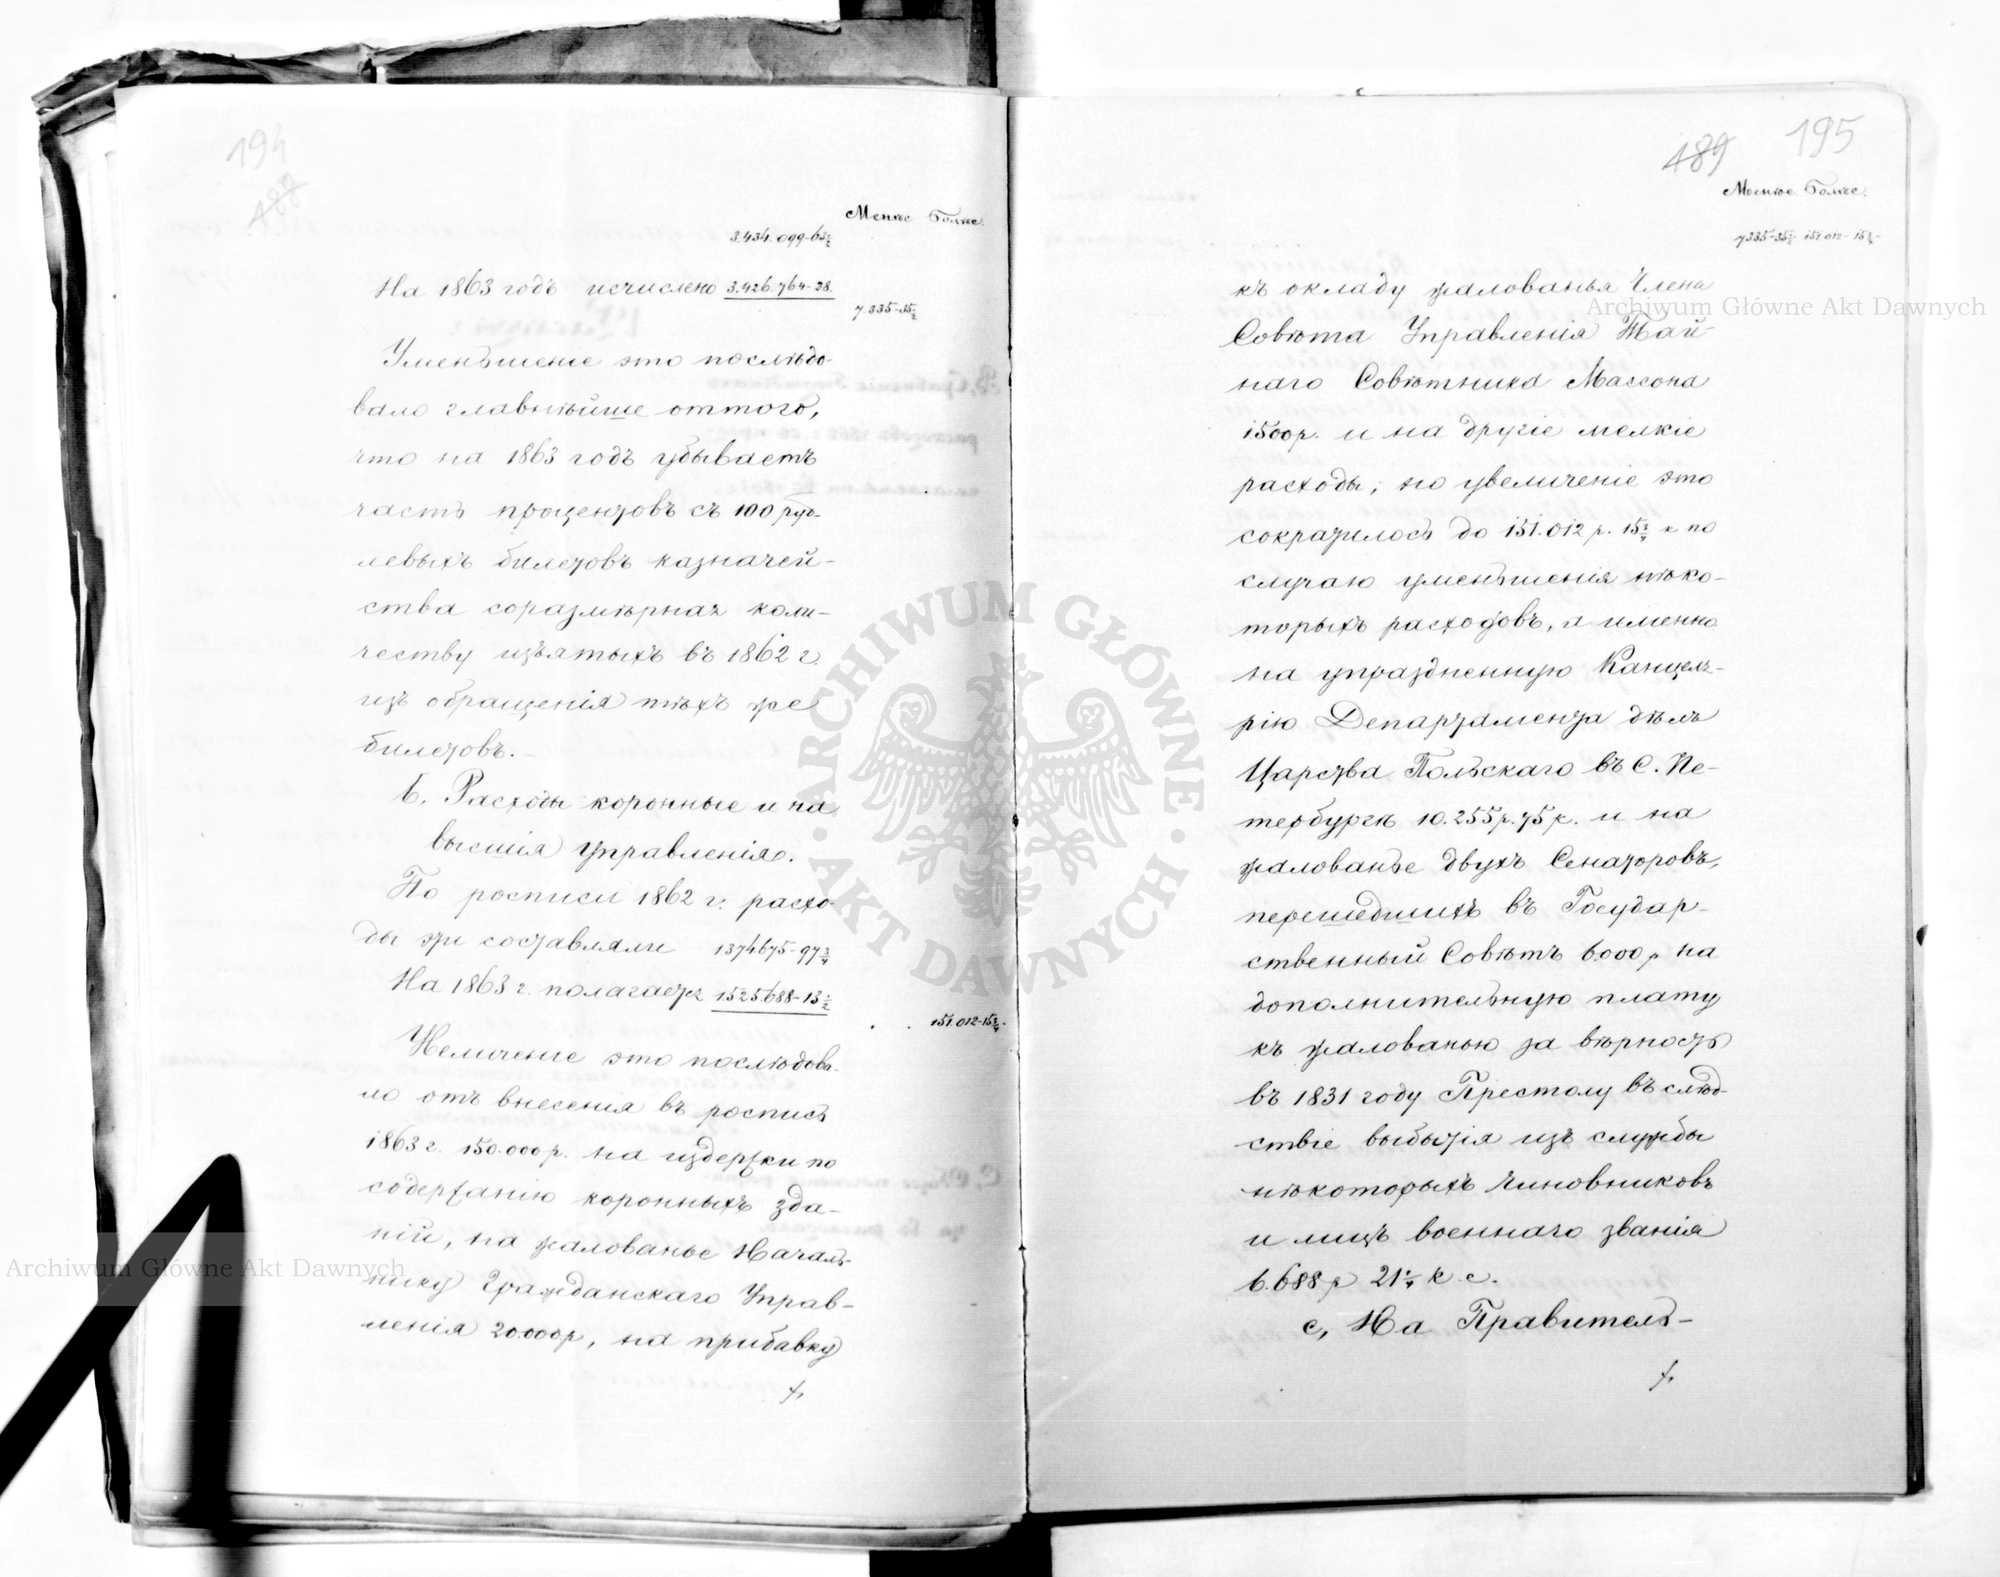 194
488
Менѣе Болѣе.
3.434.099-63½
На 1863 годъ исчислено 3.426.764-28.
7.335-35½
Уменьшеніе это послѣдо-
вало главнѣйше оттого,
что на 1863 годъ убываетъ
часть процентовъ съ 100 руб-
левыхъ билетовъ казначей-
ства соразмѣрная коли-
честву изъятыхъ въ 1862 г.
изъ обращенія тѣхъ же
билетовъ.-
b, Расходы коронные и на
высшія управленія.
По росписи 1862 г. расхо-
ды эти составляли 1374675-97¾
На 1863 г. полагается 1525.688-13½
151.012-15¾
Увеличеніе это послѣдова-
ло отъ внесенія въ роспись
1863 г. 150.000 р. на издержки по
содержанію коронныхъ зда-
ній, на жалованье Началь-
нику Гражданскаго Управ-
ленія 20.000 р, на прибавку
489
195
Менѣе Болѣе.
7335-35½ 151.012-15¾
къ окладу жалованья Члена
Совѣта Управленія Тай-
наго Совѣтника Массона
1500 р. и на другіе мелкіе
расходы; но увеличеніе это
сократилось до 151.012 р. 15¾ к по
случаю уменьшенія нѣко-
торыхъ расходовъ, а именно
на упраздненную Канцеля-
рію Департамента дѣлъ
Царства Польскаго въ С. Пе-
тербургѣ 10.255 р. 75 к. и на
жалованье двухъ Сенаторовъ,
перешедшихъ въ Государ-
ственный Совѣтъ 6.000 р на
дополнительную плату
къ жалованью за вѣрность
въ 1831 году Престолу въ слѣд-
ствіе выбытія изъ службы
нѣкоторыхъ чиновниковъ
и лицъ военнаго званія
6.688 р 21¼ к. с.
с, На Правитель-
Archiwum Główne Akt Dawnych
Archiwum Główne Akt Dawnych
ARCHIWUM GŁÓWNE AKT DAWNYCH